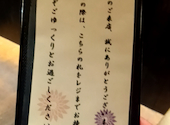 のご来店、誠にありがとうござい
の際は、こちらの札をレジまでお持
ぞごゆっくりとお過ごしください